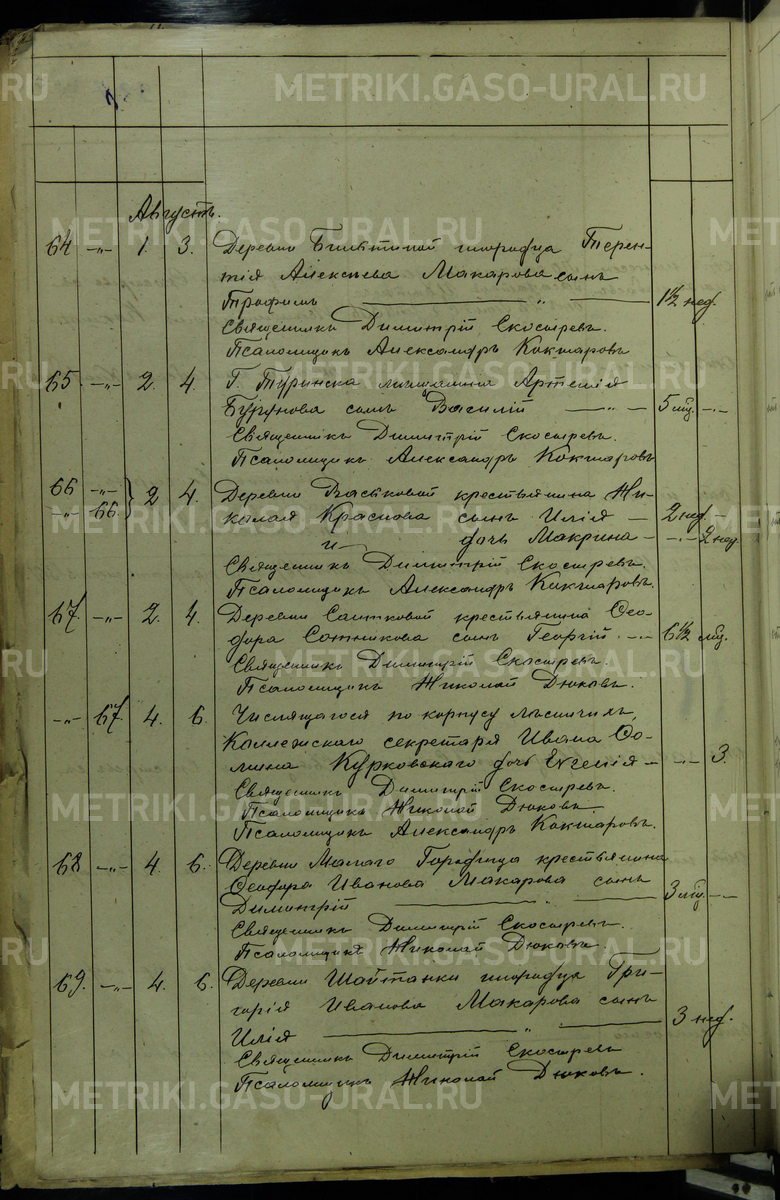 Августъ.
64 -„- 1. 3. Деревни инородца Терен-
тія Алексѣева Макарова сынъ
Трофимъ — „ — 1 1/2 нед.
Священникъ Димитрій Скосыревъ.
Псаломщикъ Александръ Кокшаровъ
65. -„- 2. 4. Г. Туринска мѣщанина Артемія
сынъ Василій -„- 5 мѣс. -„-
Священникъ Димитрій Скосыревъ.
Псаломщикъ Александръ Кокшаровъ
66 -„- 2 4. Деревни Васьковой крестьянина Ни-
-„- 66. колая Краснова сынъ Илія — 2 нед -
и дочь Макрина — -„- 2 нед.
Священникъ Димитрій Скосыревъ.
Псаломщикъ Александръ Кокшаровъ.
67. -„- 2. 4. Деревни крестьянина Ѳео-
дора Сотникова сынъ Георгій. -„- 6 1/2 мѣс.
Священникъ Димитрій Скосыревъ.
Псаломщикъ Николай Дюковъ.
-„- 67. 4. 6. Числящагося по корпусу лѣсничихъ,
Коллежскаго секретаря Ивана Ѳо-
мина Курковскаго дочь Евгенія — -„- 3.
Священникъ Димитрій Скосыревъ.
Псаломщикъ Николай Дюковъ.
Псаломщикъ Александръ Кокшаровъ.
68 -„- 4. 6. Деревни Малаго Городища крестьянина
Ѳеодора Иванова Макарова сынъ
Димитрій — „ — 3 мѣс. -„-
Священникъ Димитрій Скосыревъ.
Псаломщикъ Николай Дюковъ.
69. -„- 4. 6. Деревни Шайтанки инородца Гри-
горія Иванова Макарова сынъ
Илія — „ — 3 нед.
Священникъ Димитрій Скосыревъ
Псаломщикъ Николай Дюковъ.
METRIKI.GASO-URAL.RU